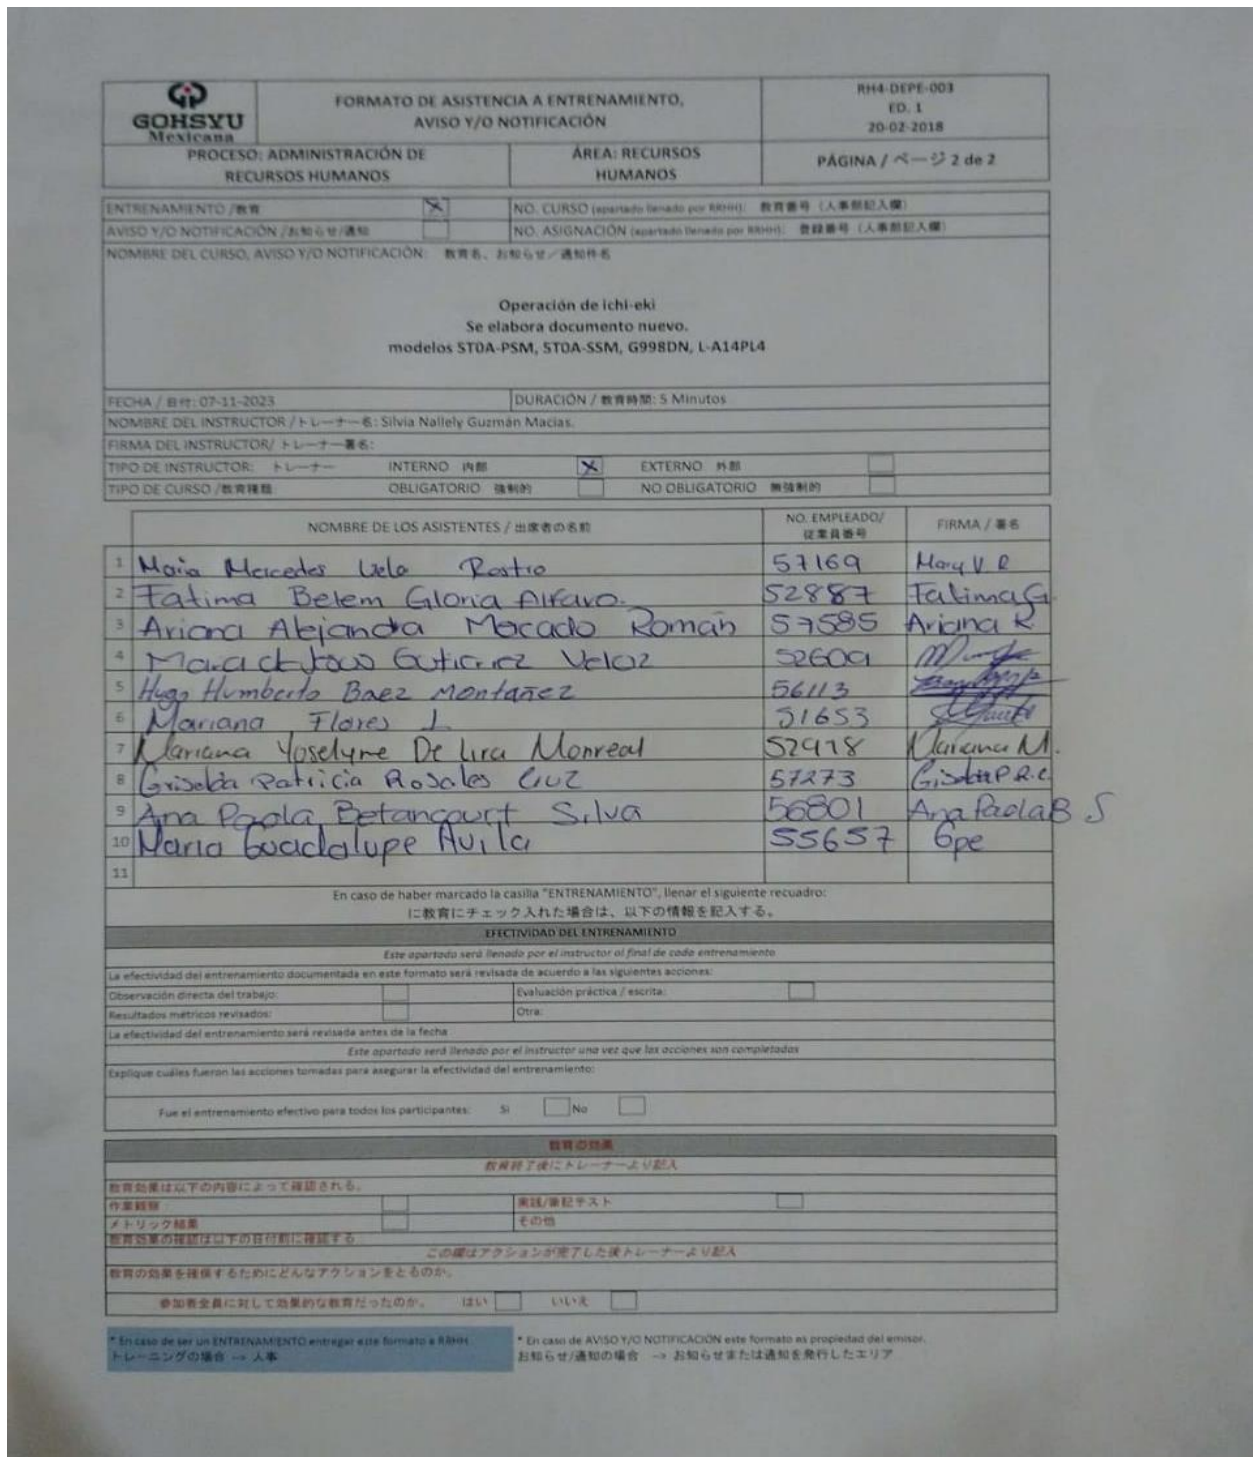 GOHSYU
Mexicana
FORMATO DE ASISTENCIA A ENTRENAMIENTO,
AVISO Y/O NOTIFICACIÓN
RH4-DEPE-003
ED. 1
20-02-2018
PROCESO: ADMINISTRACIÓN DE
RECURSOS HUMANOS
ÁREA: RECURSOS
HUMANOS
PÁGINA / ページ 2 de 2
ENTRENAMIENTO /教育
NO. CURSO (apartado llenado por RRHH): 教育番号 (人事部記入欄)
AVISO Y/O NOTIFICACIÓN /お知らせ/通知
NO. ASIGNACIÓN (apartado llenado por RRHH): 登録番号 (人事部記入欄)
NOMBRE DEL CURSO, AVISO Y/O NOTIFICACIÓN: 教育名、お知らせ/通知件名
Operación de ichi-eki
Se elabora documento nuevo.
modelos ST0A-PSM, ST0A-SSM, G998DN, L-A14PL4
FECHA / 日付: 07-11-2023
DURACIÓN / 教育時間: 5 Minutos
NOMBRE DEL INSTRUCTOR / トレーナー名: Silvia Nallely Guzmán Macias.
FIRMA DEL INSTRUCTOR/ トレーナー署名:
TIPO DE INSTRUCTOR: トレーナー INTERNO 内部 X EXTERNO 外部
TIPO DE CURSO /教育種類 OBLIGATORIO 強制的 NO OBLIGATORIO 無強制的
NOMBRE DE LOS ASISTENTES / 出席者の名前
NO. EMPLEADO/
従業員番号
FIRMA / 署名
1 Maria Mercedes Vela Rostro 57169 Mary V R
2 Fatima Belem Gloria Alfaro. 52887 Fatima G.
3 Ariana Alejandra Mocado Román 57585 Ariana R
4 Gutierrez Veloz
5 Hugo Humberto Baez Montañez 56113
6 Mariana Flores J 51653
7 Mariana Yoselyne De Lira Monreal Mariana M.
8 Griselda Patricia Rosales Cruz 57273 P.R.C
9 Ana Paola Betancourt Silva 56801 Ana Paola B S
10 Maria Guadalupe Avila 55657 Gpe
11
En caso de haber marcado la casilla "ENTRENAMIENTO", llenar el siguiente recuadro:
に教育にチェック入れた場合は、以下の情報を記入する。
EFECTIVIDAD DEL ENTRENAMIENTO
Este apartado será llenado por el instructor al final de cada entrenamiento
La efectividad del entrenamiento documentada en este formato será revisada de acuerdo a las siguientes acciones:
Observación directa del trabajo:
Evaluación práctica / escrita:
Resultados métricos revisados:
Otra:
La efectividad del entrenamiento será revisada antes de la fecha
Este apartado será llenado por el instructor una vez que las acciones son completadas
Explique cuáles fueron las acciones tomadas para asegurar la efectividad del entrenamiento:
Fue el entrenamiento efectivo para todos los participantes: Si No
教育の効果
教育終了後にトレーナーより記入
教育効果は以下の内容によって確認される。
作業観察
実践/筆記テスト
メトリック結果
その他
教育効果の確認は以下の日付前に確認する
この欄はアクションが完了した後トレーナーより記入
教育の効果を確保するためにどんなアクションをとるのか。
参加者全員に対して効果的な教育だったのか。 はい いいえ
* En caso de ser un ENTRENAMIENTO entregar este formato a RRHH.
トレーニングの場合 --> 人事
* En caso de AVISO Y/O NOTIFICACIÓN este formato es propiedad del emisor.
お知らせ/通知の場合 --> お知らせまたは通知を発行したエリア